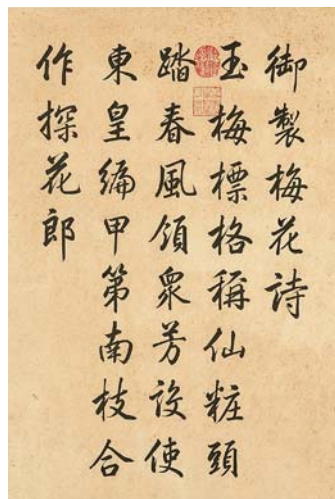 御製梅花詩
玉梅標格稱仙粧頭
踏春風領衆芳設使
東皇編甲第南枝合
作探花郎